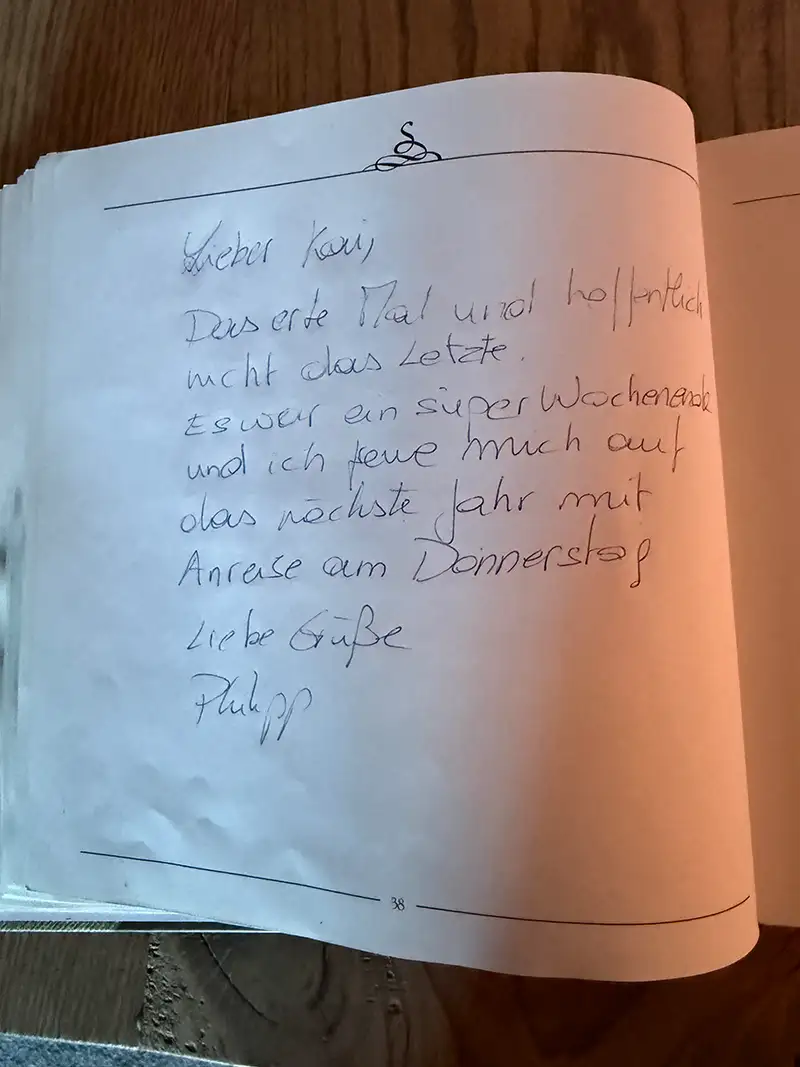 Lieber Kai,
Das erte Mal und hoffentlich
nicht das Letzte.
Es war ein super Wochenende
und ich freue mich auf
das nächste Jahr mit
Anreise am Donnerstag
Liebe Grüße
Philipp
38